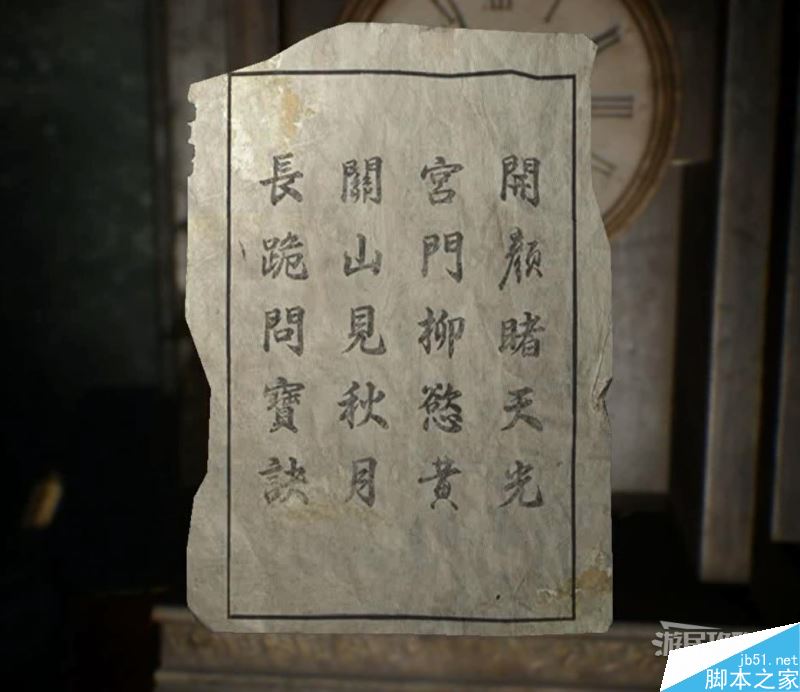 開顏睹天光
宮門柳慾黄
關山見秋月
長跪問寶訣
jb51.net
脚本之家